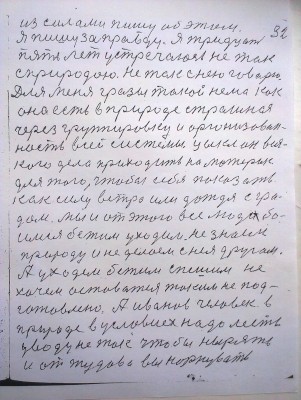 из силами пишу об этом. 32
Я пишу за правду. Я тридцат
пять лет устречаюся не так
с природою. Не так с нею говорю.
Для меня грази такой нема как
она есть в природе страшная
через группировку и организован-
ность всей системы условий вся-
кого дела приходить на материк
для того, чтобы себя показать
как силу ветра или дождя с гра-
дом. Мы и от этого все люди бо-
имся бетим уходим. не знаем
природу и не делаем с нея другам.
А уходем бетим спешим не
хочем оставатя таким не под-
готовлено. А иванов человек в
природе в условиех надо лесть
у воду не так чтобы нырять
и от тудова вынорнувать